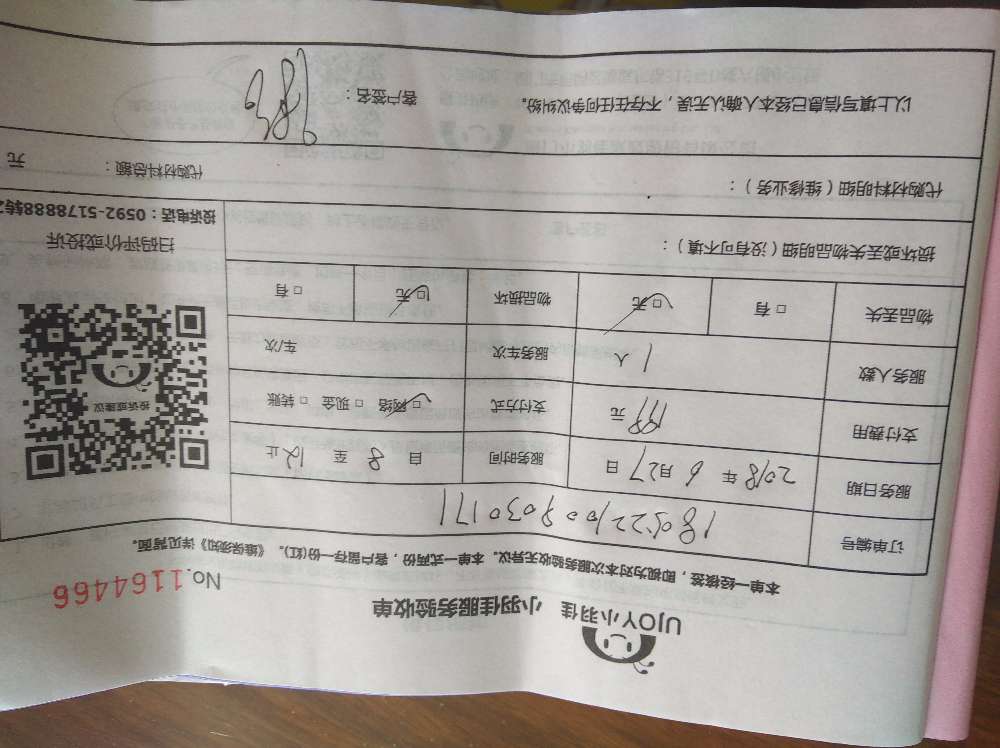 UJOY小羽佳 小羽佳服务验收单
No.1164466
本单一经核签，即视为对本次服务验收无异议。本单一式两份，客户留存一份(红)。《维保须知》详见背面。
订单编号 1805221009030171
服务日期 2018年6月27日 服务时间 自8至12止
支付费用 199元 支付方式 □网络 □现金 □转账
服务人数 1人 服务车次 车/次
物品丢失 □有 □无 物品损坏 □无 □有
损坏或丢失物品明细（没有可不填）：
代购材料明细（维修业务）： 代购材料总额： 元
以上填写信息已经本人确认无误，不存在任何争议纠纷。 客户签名：
投诉或建议
扫码评价或投诉
投诉电话：0592-5178888转2